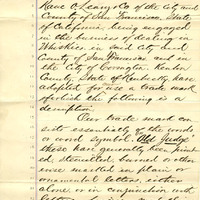 Kane O'Leary & Co of the City and
County of San Francisco, State
of California, being engaged
in the business of dealing in
Whiskies in said City and
County of San Francisco and in
the City of Covington, Kenton
County, State of Kentucky have
adopted for use a trade mark
of which the following is a
description.
Our trade mark con
sists essentially of the words
or word symbol "Old Judge"
these have generally been print
ed, stenciled, burned or other
wise marked in plain or
ornamental letters, either
alone or in conjunction with